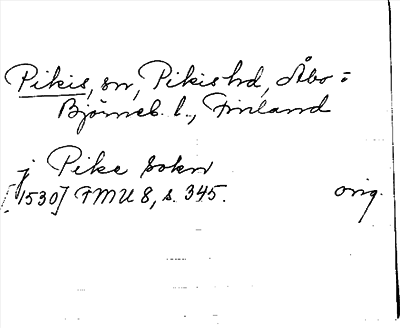 Pikis, sn, Pikis hd, Åbo =
Björneb. l., Finland
j Pike sokn
[1530] FMU 8, s. 345. orig.